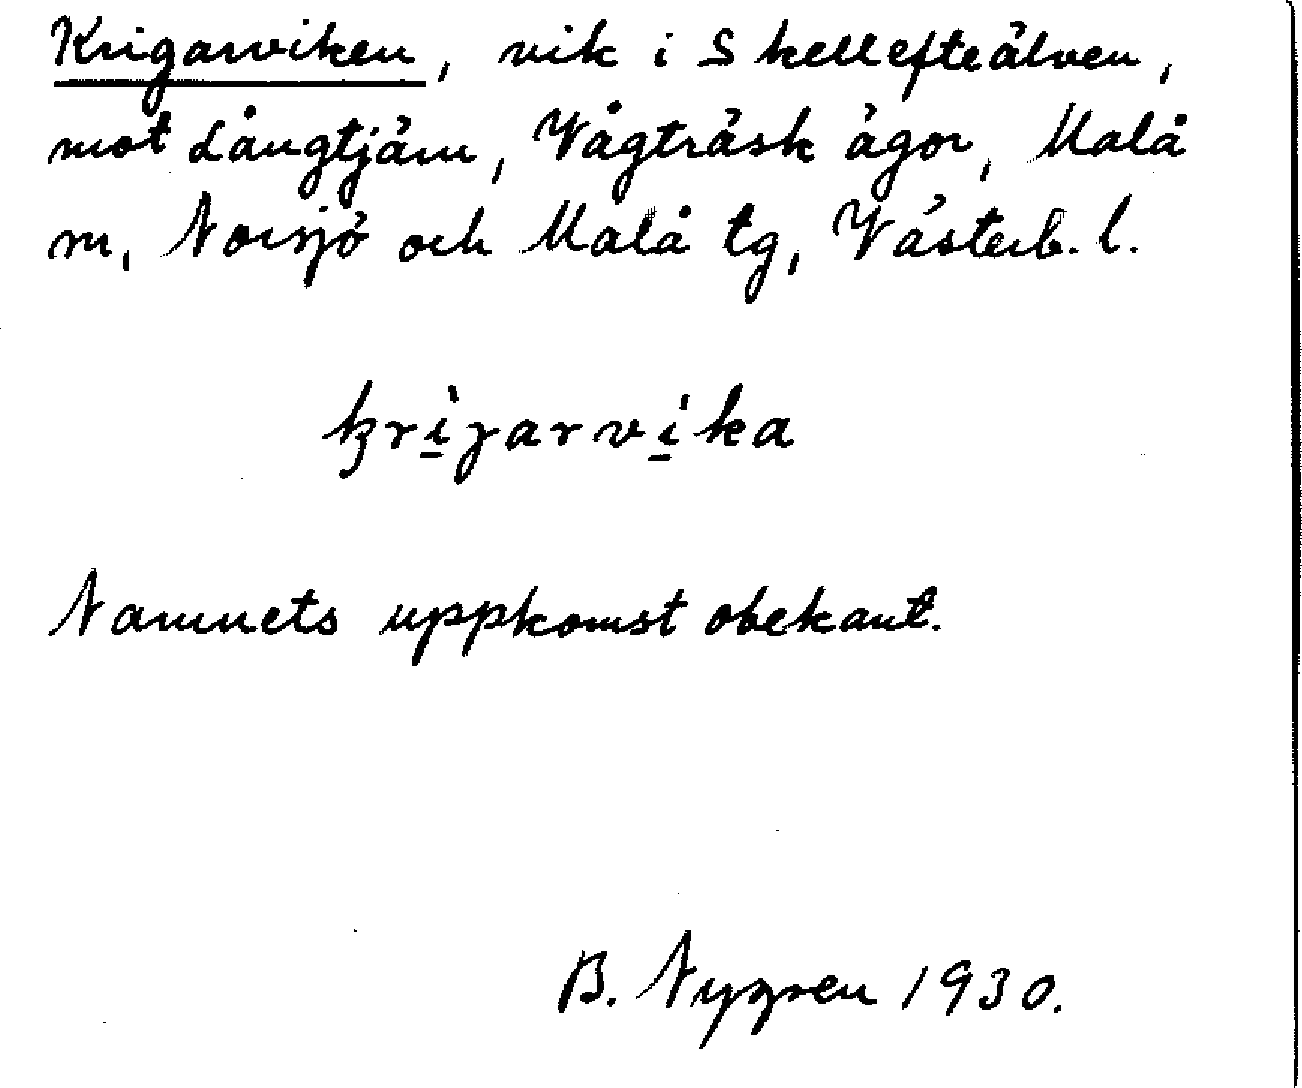 Krigarviken, vik i Skellefteälven,
mot Långtjärn, Vågträsk ägor, Malå
sn, Norsjö och Malå tg, Västerb. l.
kri̱garvi̱ka
Namnets uppkomst obekant.
B. Nygren 1930.